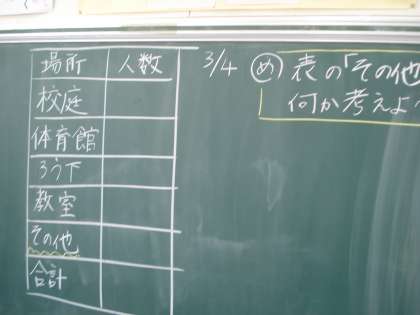 場所 人数
校庭
体育館
ろう下
教室
その他
合計
3/4 め 表の「その他
何か考えよ